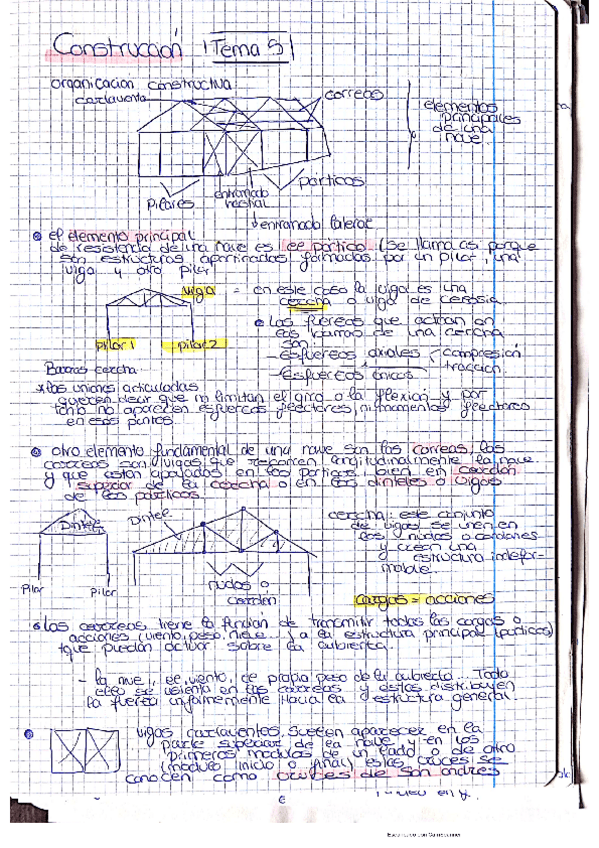 Construcción Tema 5
organización constructiva
contraviento
correas
elementos
principales
de una
nave.
Pilares
entramado
hastial
pórticos
entramado lateral
el elemento principal
de resistencia de una nave es el pórtico (se llama así porque
son estructuras aporticadas formadas por un pilar, una
viga y otro pilar
viga = en este caso la viga es una
cercha o viga de celosía
pilar 1 pilar 2
las fuerzas que actúan en
las barras de una cercha
son
- esfuerzos axiales compresión
tracción.
- Esfuerzos
Barras cercha
* las uniones articuladas
quieren decir que no limitan el giro o la flexión y por
tanto no aparecen esfuerzos flectores, ni momentos flectores
en esos puntos.
otro elemento fundamental de una nave son las correas, las
correas son vigas que recorren longitudinalmente la nave
y que están apoyadas en los pórticos, bien en cordón
superior de la cercha o en los dinteles o vigas
de los pórticos.
Dintel
Pilar Pilar
Dintel
nudos o
cordón
cercha: este conjunto
de vigas se unen en
los nudos o cordones
y crean una
estructura indefor-
mable.
cargas = acciones
las correas tiene la función de transmitir todas las cargas o
acciones (viento, peso, nieve...) a la estructura principal (pórticos)
que puedan actuar sobre la cubierta.
- la nieve, el viento, el propio peso de la cubierta... Todo
ello se asienta en las correas y estas distribuyen
la fuerza uniformemente hacia la estructura general.
vigas contravientos, suelen aparecer en la
parte superior de la nave y en los
primeros módulos de un lado o de otro
(módulo inicio o final) estas cruces se
conocen como cruces de san andrés
6